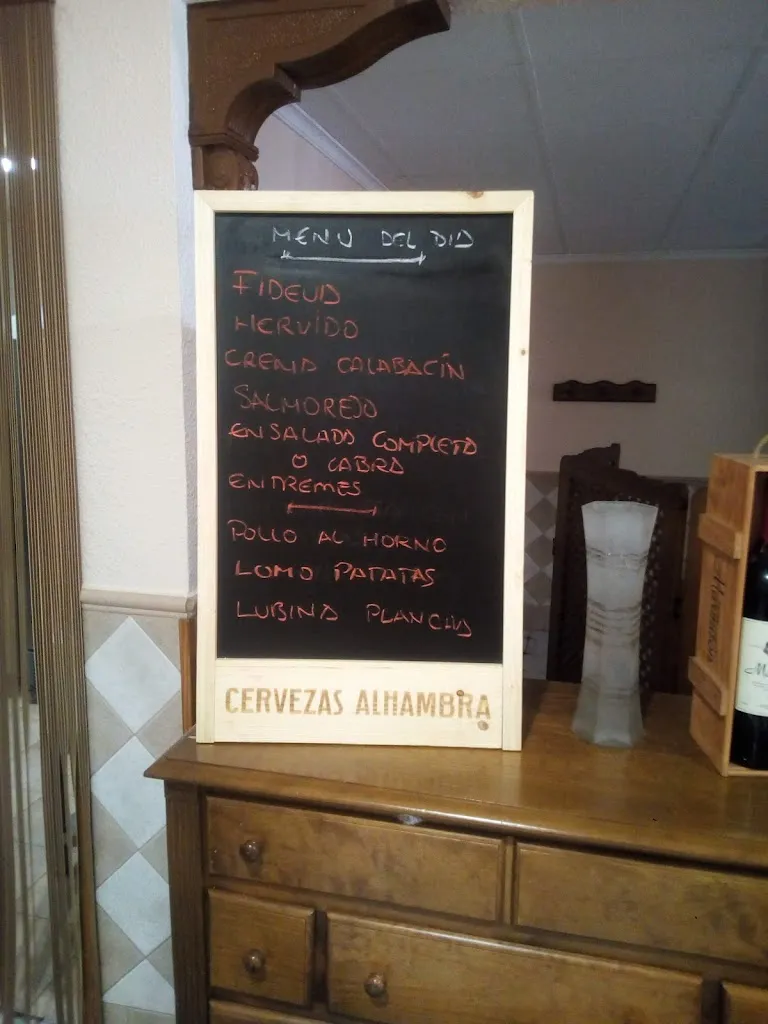 MENU DEL DIA
FIDEUA
HERVIDO
CREMA CALABACÍN
SALMOREJO
ENSALADA COMPLETA
O CABRA
ENTREMES
POLLO AL HORNO
LOMO PATATAS
LUBINA PLANCHA
CERVEZAS ALHAMBRA